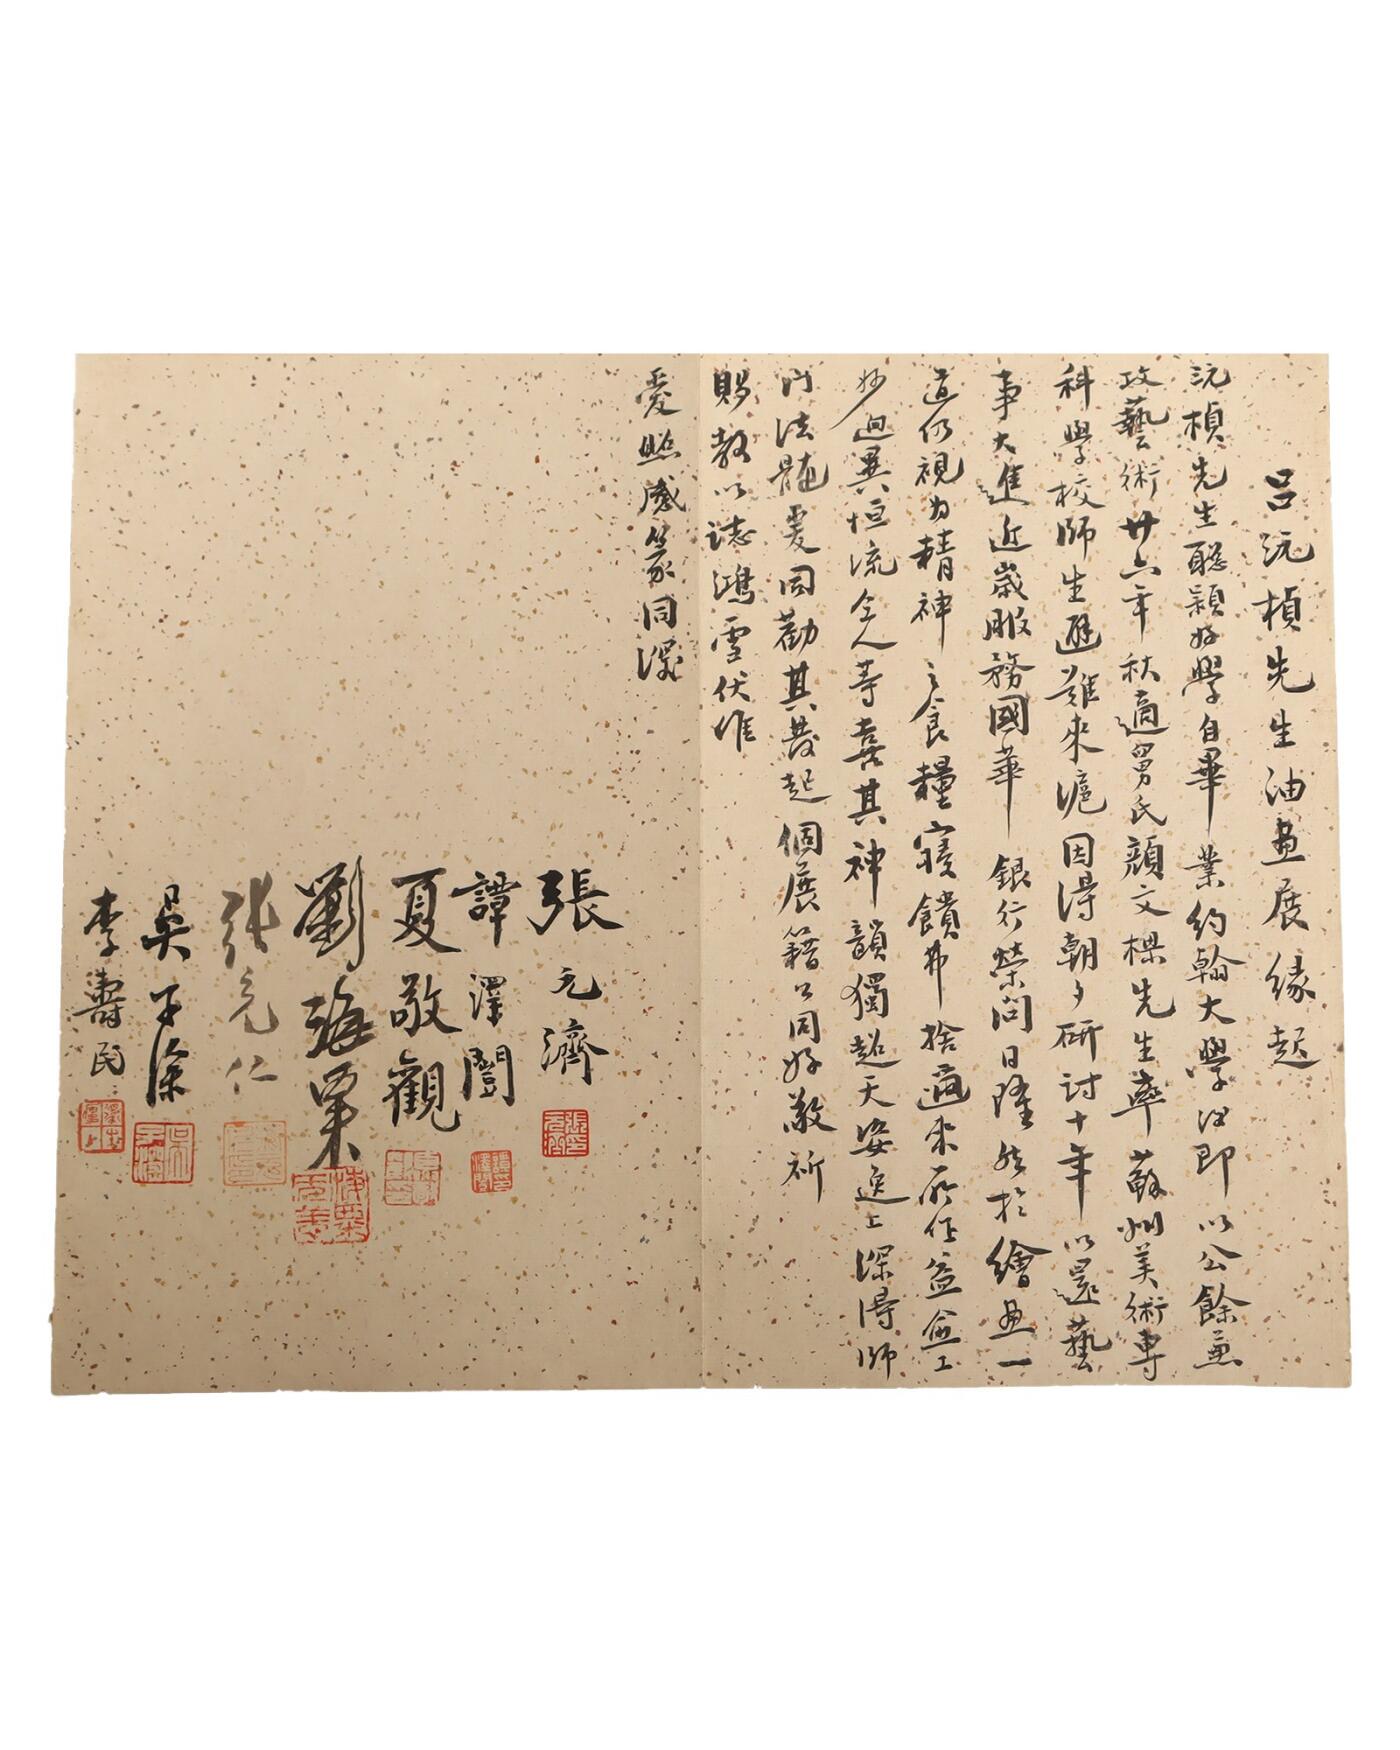 呂沅楨先生油畫展緣起
沅楨先生聰穎好學自畢業約翰大學後即以公餘兼
攻藝術廿六年秋適舅氏顏文樑先生率蘇州美術專
科學校師生避難來滬因得朝夕研討十年以還藝
事大進近歲服務國華銀行榮問日隆然於繪畫一
道仍視為精神之食糧寢饋弗捨邇來所作益僉工
妙迥異恒流仝人等喜其神韻獨超天姿逸上深得師
門法髓爰同勸其發起個展籍公同好敬祈
賜教以誌鴻雪伏惟
愛照感篆同深
張元濟
譚澤闓
夏敬觀
劉海粟
張充仁
吳子深
李壽民